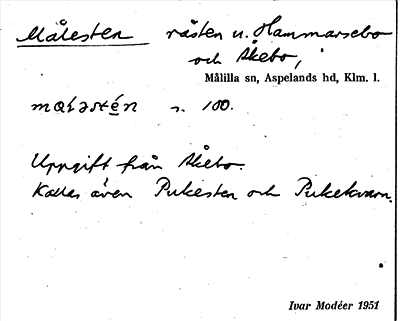 Målesten råsten u. Hammarsebo
och Åkebo,
Målilla sn, Aspelands hd, Klm. l.
s. 100.
Uppgift från Åkebo.
Kallas även Pukesten och Pukekvarn.
Ivar Modéer 1951